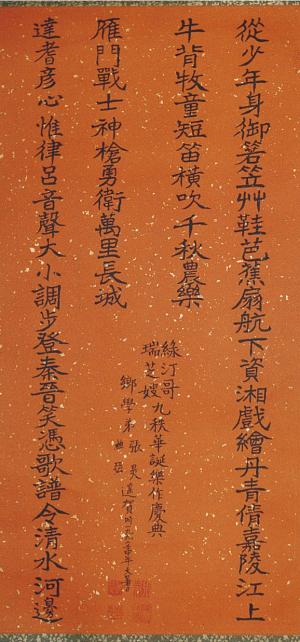 從少年身御箬笠艸鞋芭蕉扇航下資湘戲繪丹青倩嘉陵江上
牛背牧童短笛橫吹千秋農樂
達耆彥心惟律呂音聲大小調步登秦晉笑憑歌譜令清水河邊
雁門戰士神槍勇衛萬里長城
綠汀哥
瑞芝嫂九秩華誕樂作慶典
鄉學弟張昊遙賀